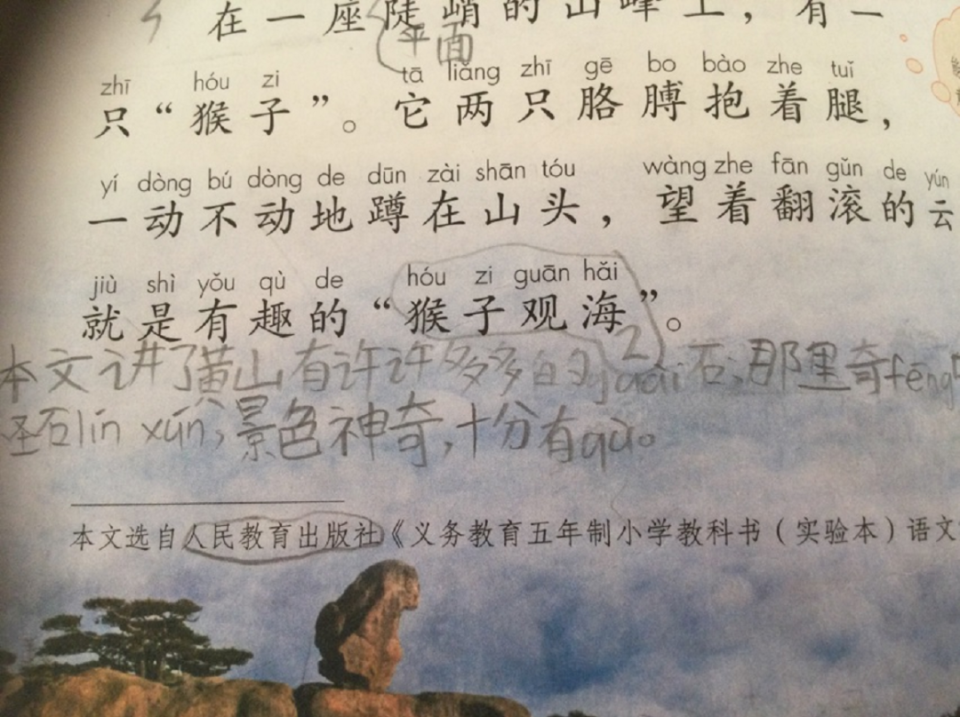 在一座陡峭的山峰上，有一
平面
zhī hóu zi tā liǎng zhī gē bo bào zhe tuǐ
只“猴子”。它两只胳膊抱着腿，
yí dòng bú dòng de dūn zài shān tóu wàng zhe fān gǔn de yún
一动不动地蹲在山头，望着翻滚的云
jiù shì yǒu qù de hóu zi guān hǎi
就是有趣的“猴子观海”。
2
本文讲了黄山有许许多多的guài石，那里奇fēng
怪石lín xún，景色神奇，十分有qù。
本文选自人民教育出版社《义务教育五年制小学教科书（实验本）语文